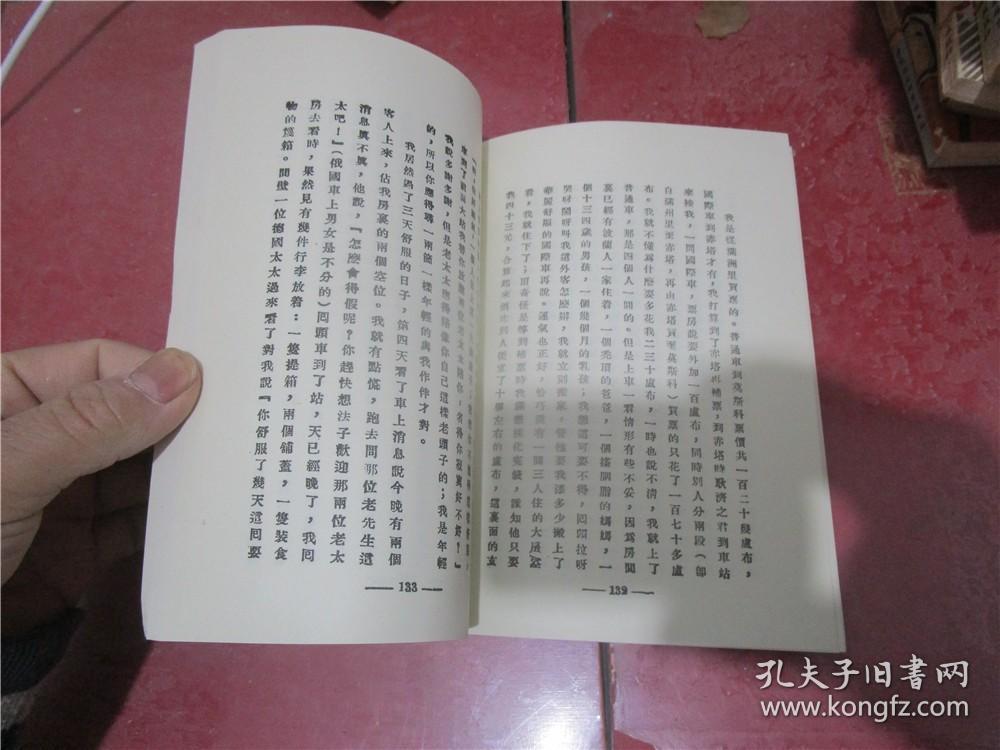 我是從滿洲里買票的。普通車到莫斯科票價共一百二十幾盧布，
國際車到赤塔才有，我打算到了赤塔再補票，到赤塔時耿濟之君到車站
來接我，一問國際車，票房說要外加一百盧布，同時別人分兩段（卽
自滿州里至赤塔，再由赤塔買至莫斯科）買票的只花了一百七十多盧
布。我就不懂爲什麼要多花我二三十盧布，一時也說不淸，我就上了
普通車，那是四個人一間的。但是上車一看情形有些不妥，因爲房間
裏已經有波蘭人一家住着，一個禿頂的爸爸，一個搽胭脂的媽媽，一
個十三四歲的男孩，一個幾個月的乳孩；我想這可要不得，回頭拉呀
哭呀鬧呀叫我這外客怎麼辦，我就立刻搬家，管他要我添多少搬上了
華麗舒服的國際車再說。運氣也正好，恰巧還有一間三人住的大房空
着，我就住下了；
我四十三元，合算起來
十個左右的盧布，這裏面的玄
— 132 —
我說多謝多謝，但是老太太應得陪像你自己這樣老頭子的；我是年輕
的，所以你應得尋一兩個一樣年輕的與我作伴才對。
我居然過了三天舒服的日子，第四天看了車上消息說今晚有兩個
客人上來，佔我房裏的兩個空位。我就有點慌，跑去問那位老先生這
消息眞不眞，他說，『怎麼會得假呢？你趕快想法子歡迎那兩位老太
太吧！』（俄國車上男女是不分的）回頭車到了站，天已經晚了，我回
房去看時，果然見有幾件行李放着：一隻提箱，兩個舖蓋，一隻裝食
物的篾箱。間壁一位德國太太過來看了對我說『你舒服了幾天這回要
— 133 —
孔夫子旧書网
www.kongfz.com